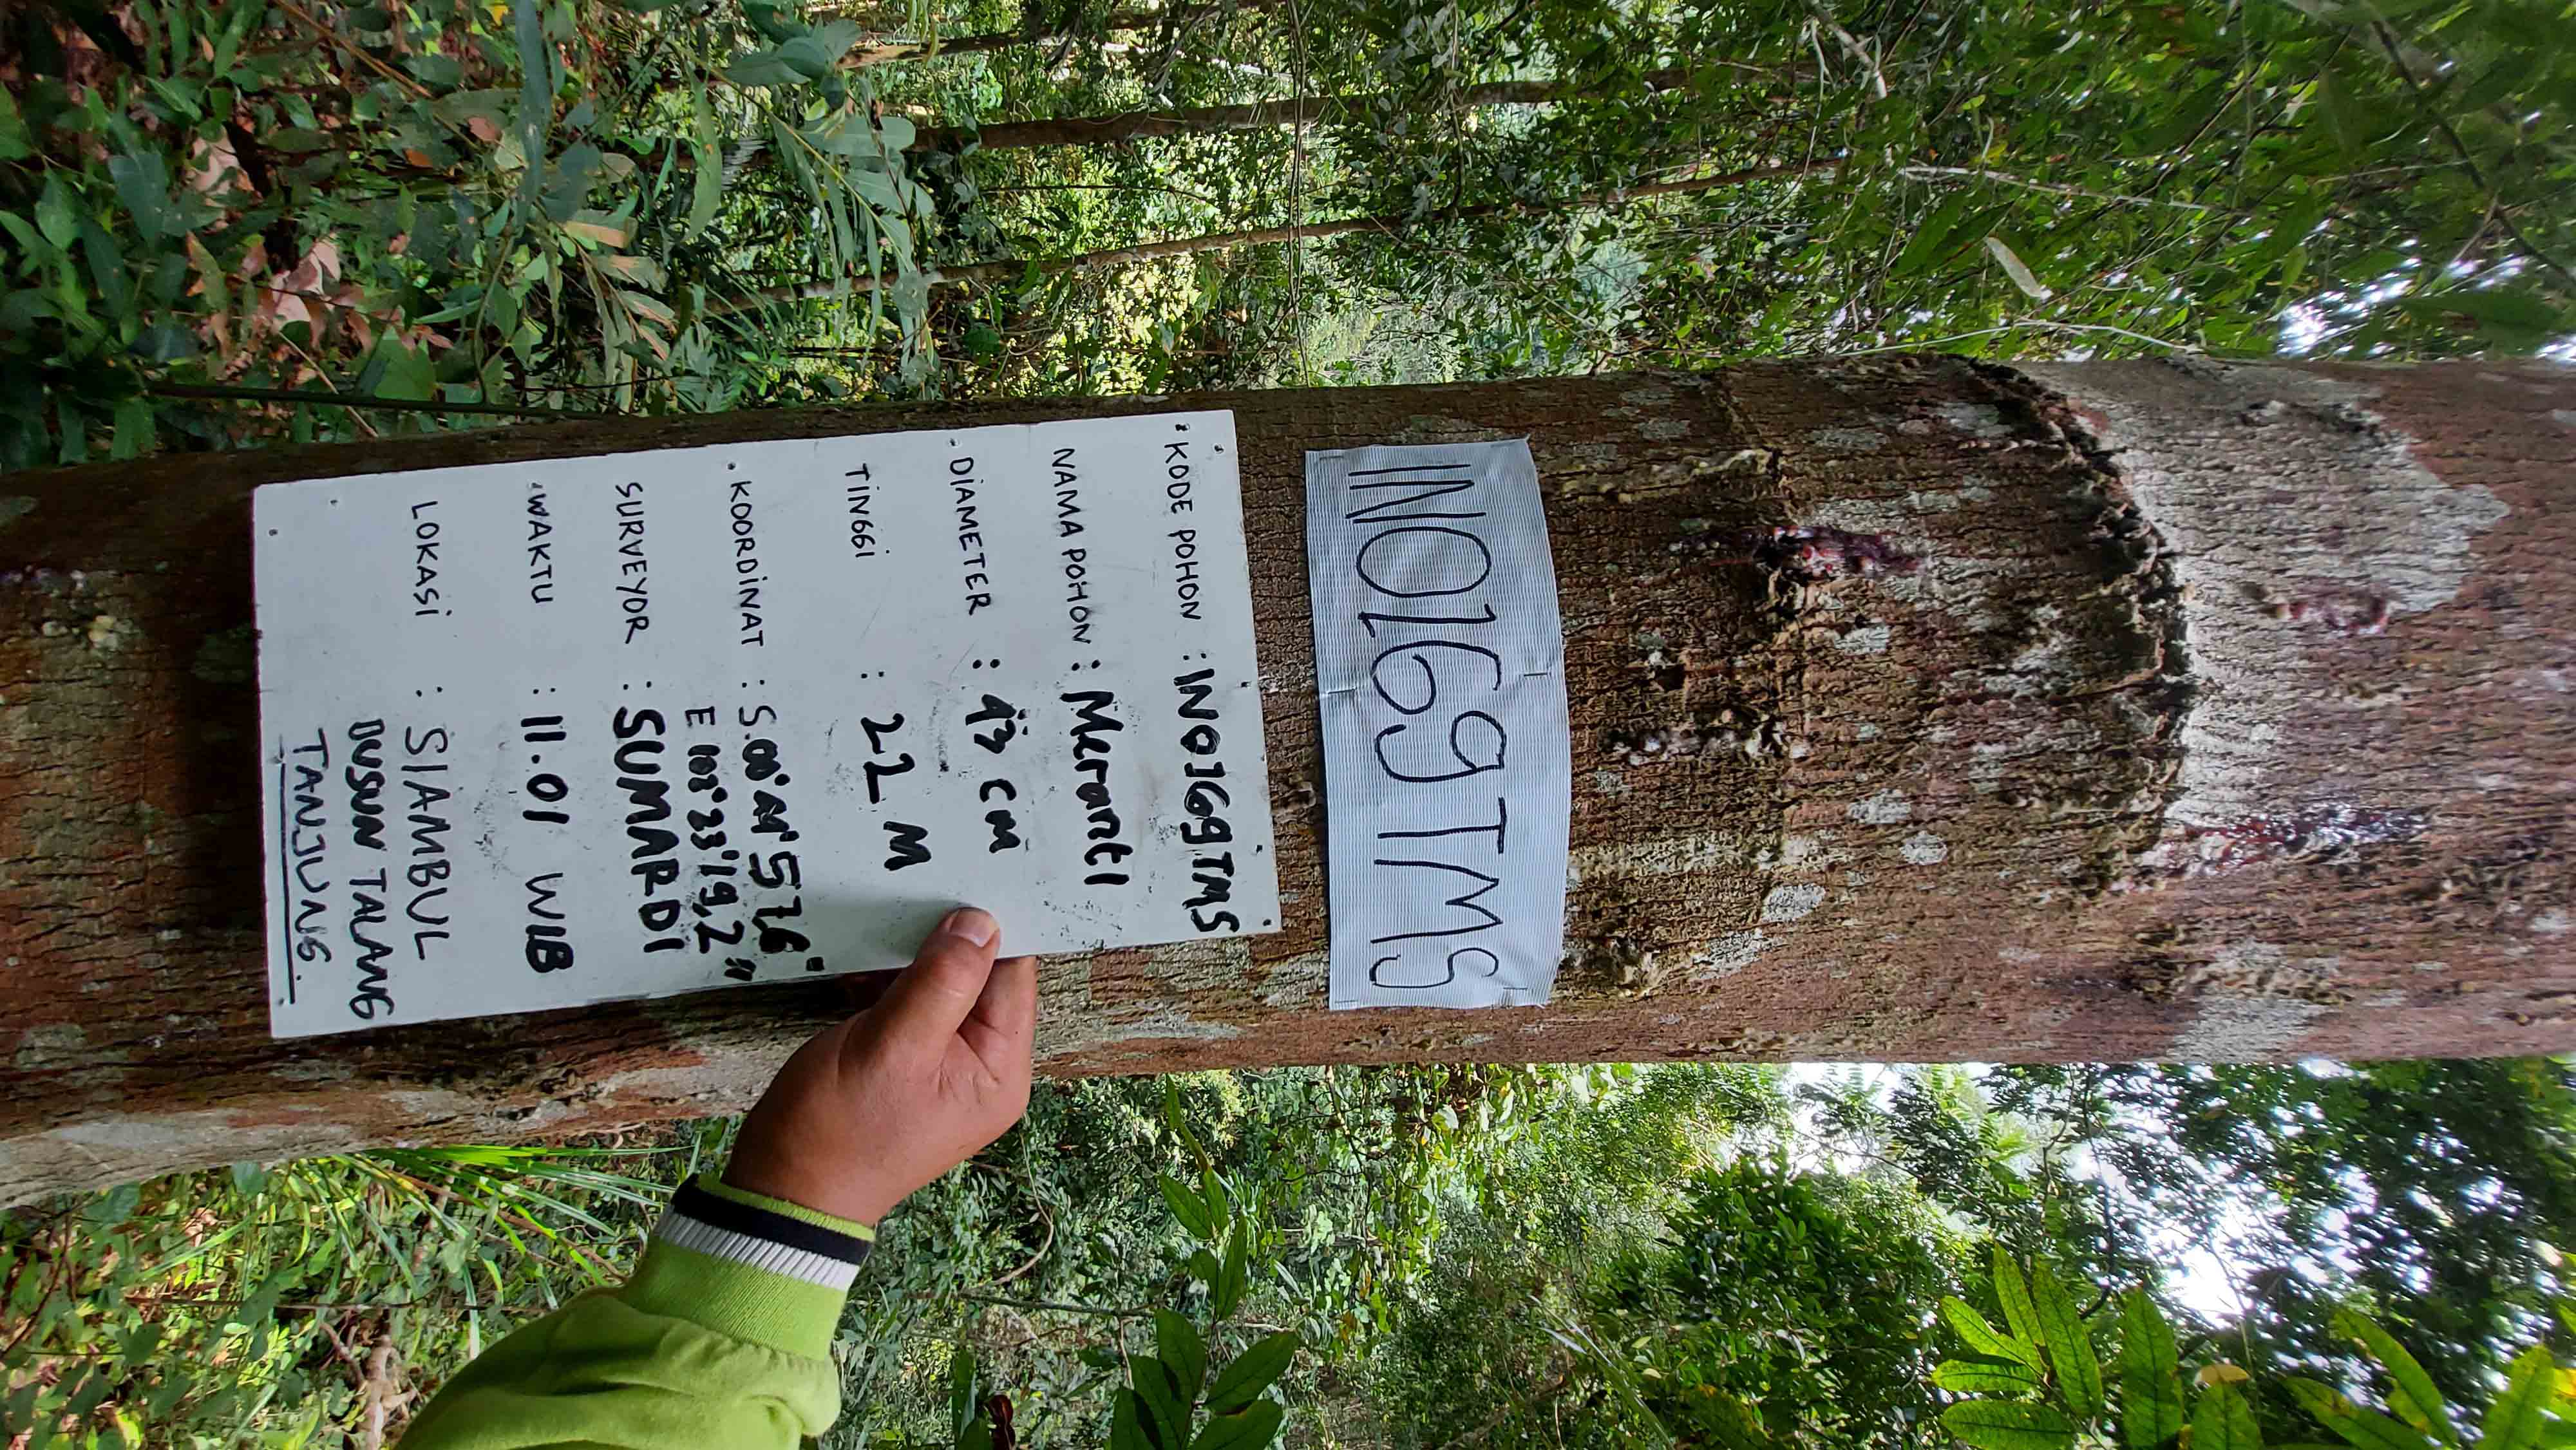 IN0169TMS
KODE POHON : IN0169TMS
NAMA POHON : Meranti
DIAMETER : 43 CM
TINGGI : 22 M
KOORDINAT : S. 00° 57,6"
E 102° 23' 19,2"
SURVEYOR : SUMARDI
WAKTU : 11.01 WIB
LOKASI : SIAMBUL
DUSUN TALANG
TANJUNG.